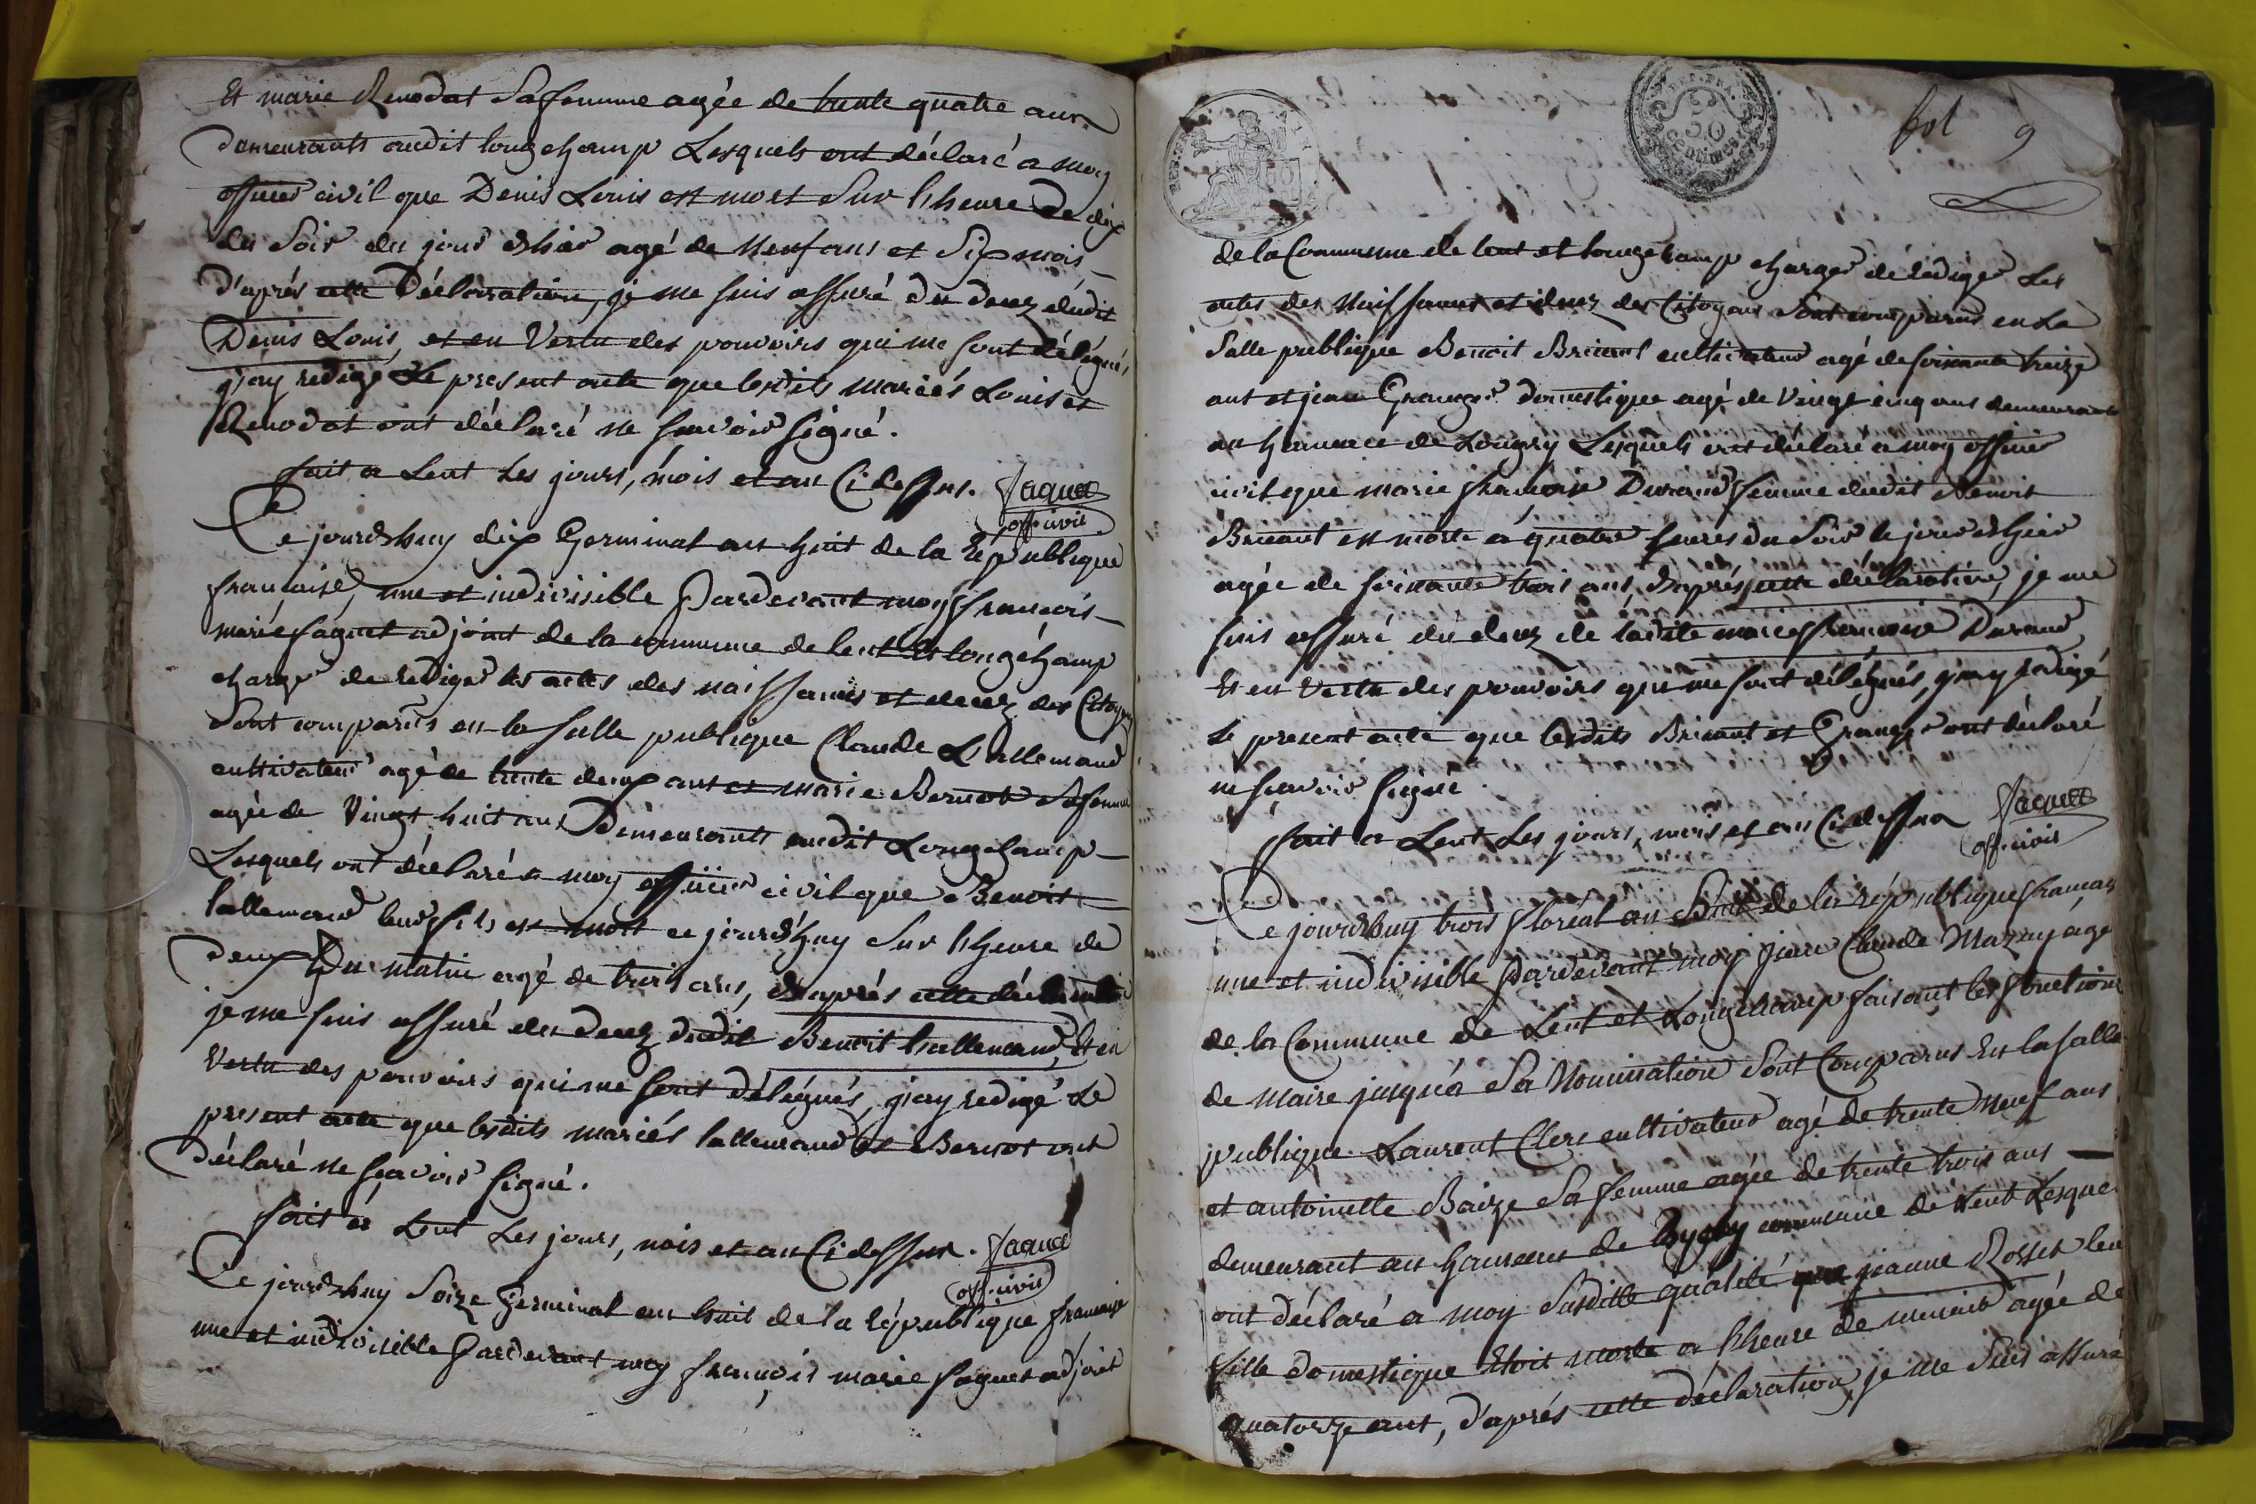 Et marie Renodat Sa femme agée de trente quatre ans
demeurants audit longchamp Lesquels ont déclaré a moy
officier civil que Denis Louis est mort Sur l'heure de dix
du Soir du jour d'hier agé de Neuf ans et Six mois
d'aprés cette Déclaration, je me suis assuré du decez dudit
Denis Louis, et en Vertu des pouvoirs qui me sont délégués,
j'ay redigé Le present acte que lesdits mariés Louis et
Renodat ont déclaré ne sçavoir signé.
fait a Lent Les jours, mois et an Ci dessus. Jaquet
off. civil
Ce jourd'huy dix Germinal an huit de la République
française, une et indivisible Pardevant moy francois
marie Jaquet adjoint de la commune de lent et longchamp
chargé de rediger les actes des naissances et decez des Citoyens
Sont comparus en la salle publique Claude Lallemand
cultivateur agé de trente deux ans et marie Bernot Sa femme
agée de Vingt huit ans Demeurants audit Longchamp
Lesquels ont déclaré a moy officier civil que Benoit
lallemand leur fils est mort ce jourd'huy Sur l'heure de
deux Du matin agé de trois ans, d'aprés cette déclaration
je me suis assuré du decez dudit Benoit Lallemand, Et en
Vertu des pouvoirs qui me sont délégués, j'ay redigé Le
present acte que lesdits mariés lallemand et Bernot ont
déclaré ne sçavoir signé.
fait à Lent Les jours, mois et an Ci dessus. Jaquet
off. civil
Ce jourd'huy Seize Germinal an huit de la République française
une et indivisible Pardevant moy françois marie Jaquet adjoint
REP. FRA.
50
Centimes
fol 9
de la Commune de lent et longchamp chargé de rediger Les
actes des Naissances et decez des Citoyens Sont comparus en La
Salle publique Benoit Briant cultivateur agé de soixante treize
ans et jean Granger domestique agé de Vingt cinq ans demeurants
au hameau de Longry Lesquels ont déclaré a moy officier
civil que marie françoise Durand femme dudit Benoit
Briant est morte à quatre heures du Soir le jour d'hier
agée de soixante trois ans, d'aprés cette déclaration, je me
suis assuré du decez de ladite marie françoise Durand
Et en Vertu des pouvoirs qui me sont délégués, j'ay redigé
Le present acte que lesdits Briant et Granger ont déclaré
ne sçavoir signé
fait a Lent Les jours, mois et an Ci dessus Jaquet
off. civil
Ce jourd'huy trois floréal an huit de la république française
une et indivisible Pardevant moy jean Claude Mazuy agé
de la Commune de Lent et Longchamp faisant les fonctions
de maire jusqu'à Sa Nomination Sont Comparus En la salle
publique Laurent Clerc cultivateur agé de trente Neuf ans
et antoinette Baize Sa femme agée de trente trois ans
demeurant au hameau de commune de Lent Lesquels
ont déclaré a moy Susditte qualité que jeanne Rosset leur
fille domestique Etoit morte a l'heure de minuit agée de
quatorze ans, d'aprés cette déclaration, je me Suis assuré